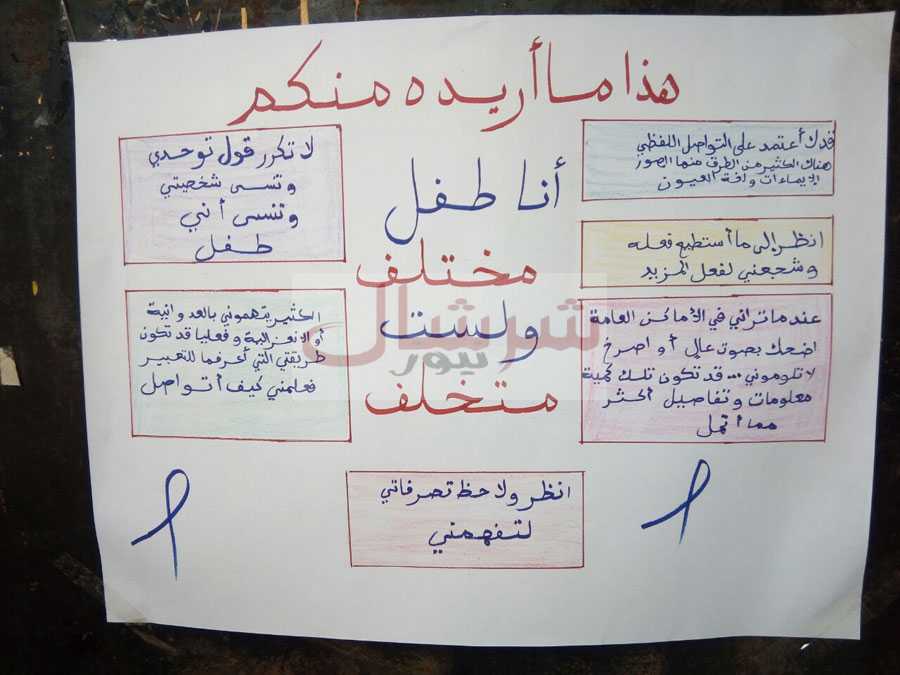 هذا ما أريده منكم
قد لا أعتمد على التواصل اللفظي
هناك الكثير من الطرق منها الصور
الإيماءات ولغة العيون
انظر إلى ما أستطيع فعله
وشجعني لفعل المزيد
عندما تراني في الأماكن العامة
اضحك بصوت عالٍ أو اصرخ
لا تلوموني ... قد تكون تلك كمية
معلومات وتفاصيل أكثر
مما أتحمل
أنا طفل
مختلف
ولست
متخلف
لا تكرر قول توحدي
وتنسى شخصيتي
وتنسى أنني
طفل
الكثير يتهموني بالعدوانية
أو الانعزالية وفعليا قد تكون
طريقتي التي أعرفها للتعبير
فعلمني كيف أتواصل
انظر ولاحظ تصرفاتي
لتفهمني
شرشال
نيوز